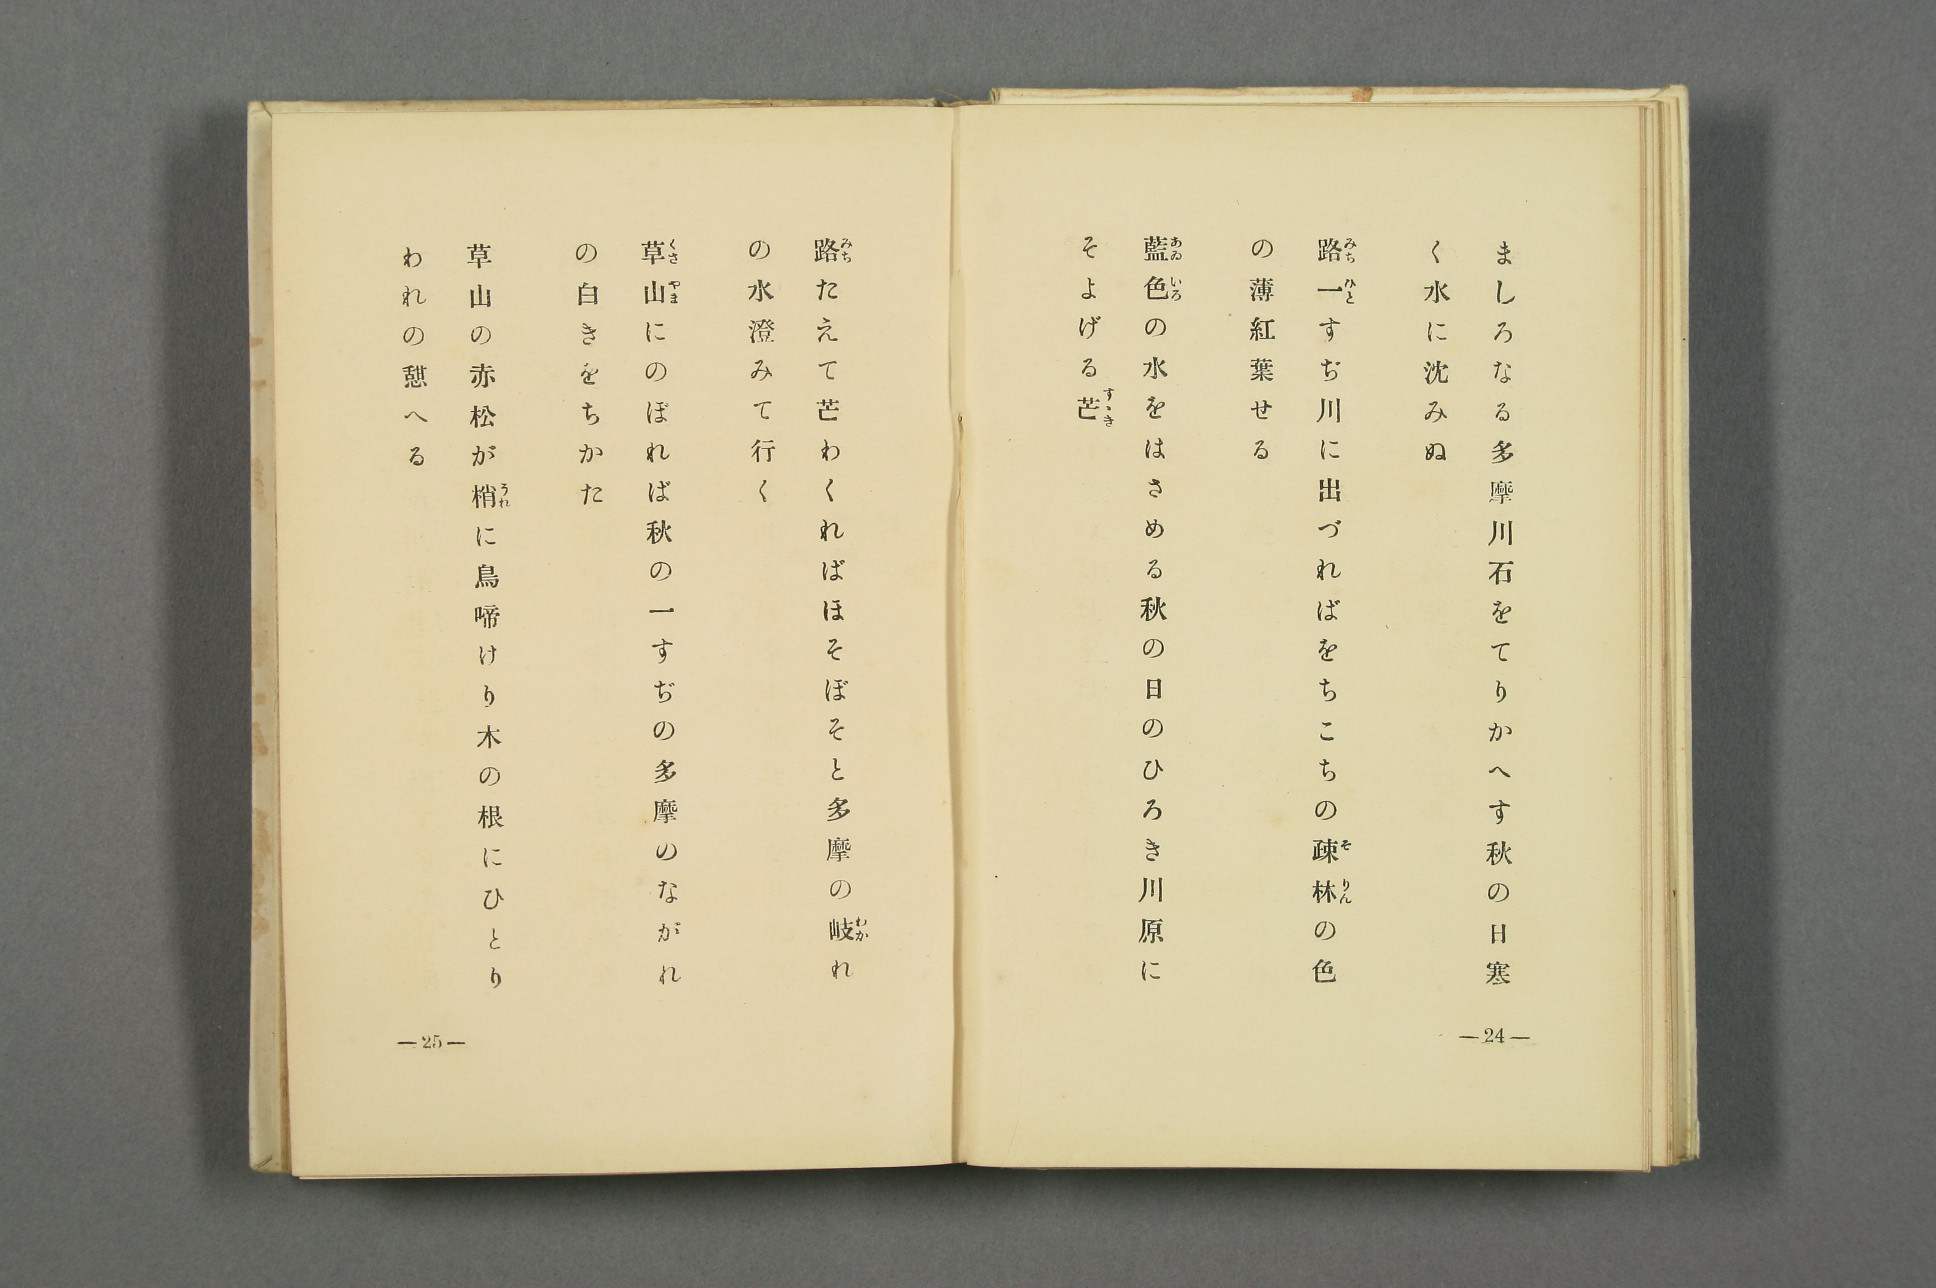 ましろなる多摩川石をてりかへす秋の日寒
く水に沈みぬ
路一すぢ川に出づればをちこちの疎林の色
の薄紅葉せる
藍色の水をはさめる秋の日のひろき川原に
そよげる芒
—24—
路たえて芒わくればほそぼそと多摩の岐れ
の水澄みて行く
草山にのぼれば秋の一すぢの多摩のながれ
の白きをちかた
草山の赤松が梢に鳥啼けり木の根にひとり
われの憩へる
—25—